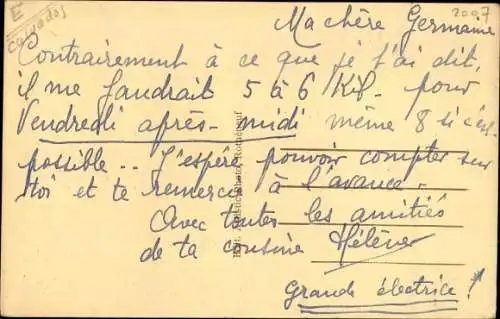 E
Calvados
2007
Ma chère Germaine
Contrairement à ce que je t'ai dit,
il me faudrait 5 à 6 Kil. pour
Vendredi après-midi même 8 si c'est
possible.. J'espère pouvoir compter sur
toi et te remercie à l'avance.
Avec toutes les amitiés
de ta cousine Hélène
Grande électrice !